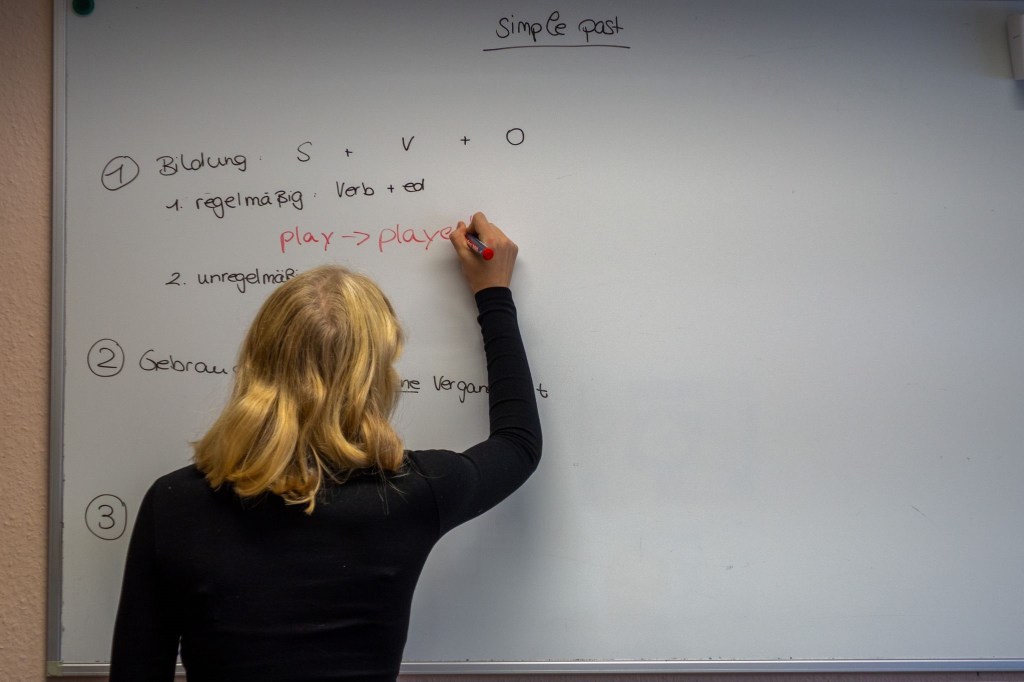 Simple past
① Bildung: S + V + O
1. regelmäßig: Verb + ed
play -> playe
2. unregelmäßi
②
Vergan
③